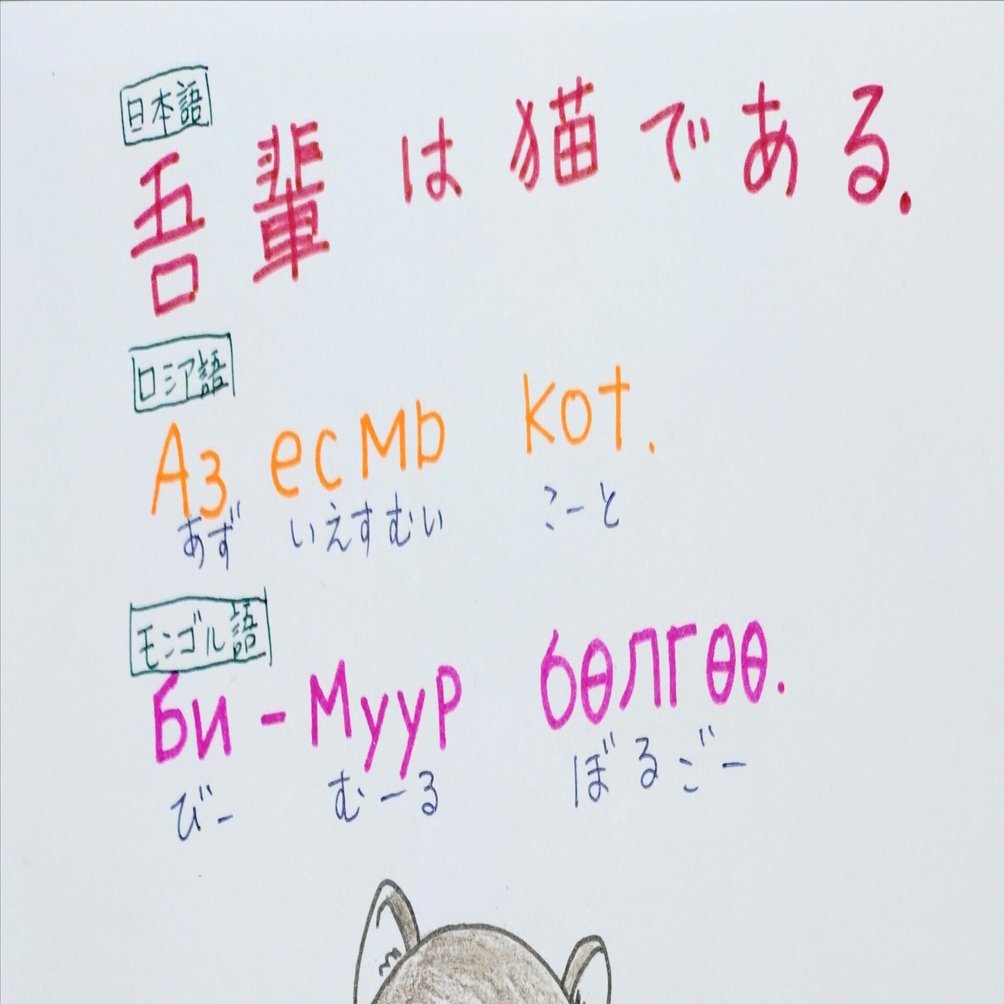 日本語
吾輩は猫である.
ロシア語
Аз есмь кот.
あず いえすむい こーと
モンゴル語
Би - Муур бөлгөө.
びー むーる ぼるごー